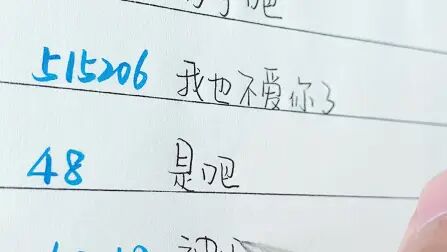 吧
515206 我也不爱你了
48 是吧